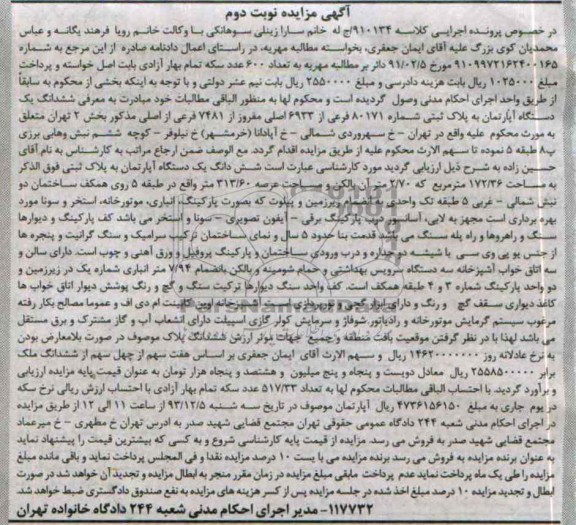 آگهی مزایده نوبت دوم
در خصوص پرونده اجرایی کلاسه ۹۱۰۱۳۴/ج له خانم سارا زینلی سوهانکی با وکالت خانم رویا فرهند یگانه و عباس
محمدیان کوی بزرگ علیه آقای ایمان جعفری، بخواسته مطالبه مهریه، در راستای اعمال دادنامه صادره از این مرجع به شماره
۹۱۰۹۹۷۲۱۶۲۴۰۰۱۶۵ مورخ ۹۱/۰۲/۵ دائر بر مطالبه مهریه به تعداد ۶۰۰ عدد سکه تمام بهار آزادی بابت اصل خواسته و پرداخت
مبلغ ۱۰۲۵۰۰۰ ریال بابت هزینه دادرسی و مبلغ ۲۵۵۰۰۰۰ ریال بابت نیم عشر دولتی و با توجه به اینکه بخشی از محکوم به سابقاً
از طریق واحد اجرای احکام مدنی وصول گردیده است و محکوم لها به منظور الباقی مطالبات خود مبادرت به معرفی ششدانگ یک
دستگاه آپارتمان به پلاک ثبتی شماره ۸۰۱۷۱ فرعی از ۶۹۳۳ اصلی مفروز از ۷۴۸۱ فرعی از اصلی مذکور بخش ۲ تهران متعلق
به مورث محکوم علیه واقع در تهران - خ سهروردی شمالی - خ آپادانا (خرمشهر) خ نیلوفر - کوچه ششم نبش وهابی برزی
پ۸ طبقه ۵ نموده تا سهم الارث محکوم علیه از طریق مزایده اقدام گردد. مع الوصف ضمن ارجاع مراتب به کارشناس به نام آقای
حسین زاده به شرح ذیل ارزیابی گردید مورد کارشناسی عبارت است شش دانگ یک دستگاه آپارتمان به پلاک ثبتی فوق الذکر
به مساحت ۱۷۲/۳۶ مترمربع که ۲/۷۰ متر آن بالکن و مساحت عرصه ۳۱۳/۶۰ متر واقع در طبقه ۵ روی همکف ساختمان دو
نبش شمالی - غربی ۵ طبقه تک واحدی به انضمام زیرزمین و پیلوت که بصورت پارکینگ، انباری، موتورخانه، استخر و سونا مورد
بهره برداری است مجهز به لابی، آسانسور درب پارکینگ برقی - آیفون تصویری - سونا و استخر می باشد کف پارکینگ و دیوارها
سنگ و راهروها و راه پله سنگ می باشد قدمت بنا حدود ۵ سال و نمای ساختمان ترکیب سرامیک و سنگ گرانیت و پنجره ها
از جنس یو پی وی سی با شیشه دو جداره و درب ورودی ساختمان و پارکینگ پروفیل و ورق آهنی و چوب است. دارای سالن و
سه اتاق خواب آشپزخانه سه دستگاه سرویس بهداشتی و حمام شومینه و بالکن بانضمام ۷/۹۴ متر انباری شماره یک در زیرزمین و
دو واحد پارکینگ شماره ۳ و ۴ طبقه همکف است. کف واحد سنگ دیوارها ترکیب سنگ و گچ و رنگ پوشش دیوار اتاق خواب ها
کاغذ دیواری سقف گچ و رنگ و دارای ابزار گچی و نورپردازی است آشپزخانه اوپن کابینت ام دی اف و عموما مصالح بکار رفته
مرغوب سیستم گرمایش موتورخانه و رادیاتور شوفاژ و سرمایش کولر گازی اسپیلت دارای انشعاب آب و گاز مشترک و برق مستقل
می باشد لهذا با در نظر گرفتن موقعیت بافت منطقه و جمیع جهات موثر ارزش ششدانگ پلاک موصوف در صورت بلامعارض بودن
به نرخ عادلانه روز ۱۴۶۲۰۰۰۰۰۰۰ ریال و سهم الارث آقای ایمان جعفری بر اساس هفت سهم از چهل سهم از ششدانگ ملک
برابر ۲۵۵۸۵۰۰۰۰۰ ریال معادل دویست و پنجاه و پنج میلیون و هشتصد و پنجاه هزار تومان به عنوان قیمت پایه مزایده ارزیابی
و برآورد گردید. با احتساب الباقی مطالبات محکوم لها به تعداد ۵۱۷/۳۳ عدد سکه تمام بهار آزادی با احتساب ارزش ریالی نرخ سکه
در یوم جاری به مبلغ ۴۷۳۶۱۵۶۱۵۰ ریال آپارتمان موصوف در تاریخ سه شنبه ۹۳/۱۲/۵ از ساعت ۱۱ الی ۱۲ از طریق مزایده
در اجرای احکام مدنی شعبه ۲۴۴ دادگاه عمومی حقوقی تهران مجتمع قضایی شهید صدر به ادرس تهران خ مطهری - خ میرعماد
مجتمع قضایی شهید صدر به فروش می رسد. مزایده از قیمت پایه کارشناسی شروع و به کسی که بیشترین قیمت را پیشنهاد نماید
به عنوان برنده مزایده به فروش می رسد برنده مزایده می با یست ۱۰ درصد مزایده نقدا و فی المجلس پرداخت نماید و باقی مانده مبلغ
مزایده را طی یک ماه پرداخت نماید عدم پرداخت مابقی مبلغ مزایده در زمان مقرر منجر به ابطال مزایده و تجدید آن خواهد شد در صورت
ابطال و تجدید مزایده ۱۰ درصد مبلغ اخذ شده در جلسه مزایده پس از کسر هزینه های مزایده به نفع صندوق دادگستری ضبط خواهد شد.
۱۱۷۷۳۲- مدیر اجرای احکام مدنی شعبه ۲۴۴ دادگاه خانواده تهران